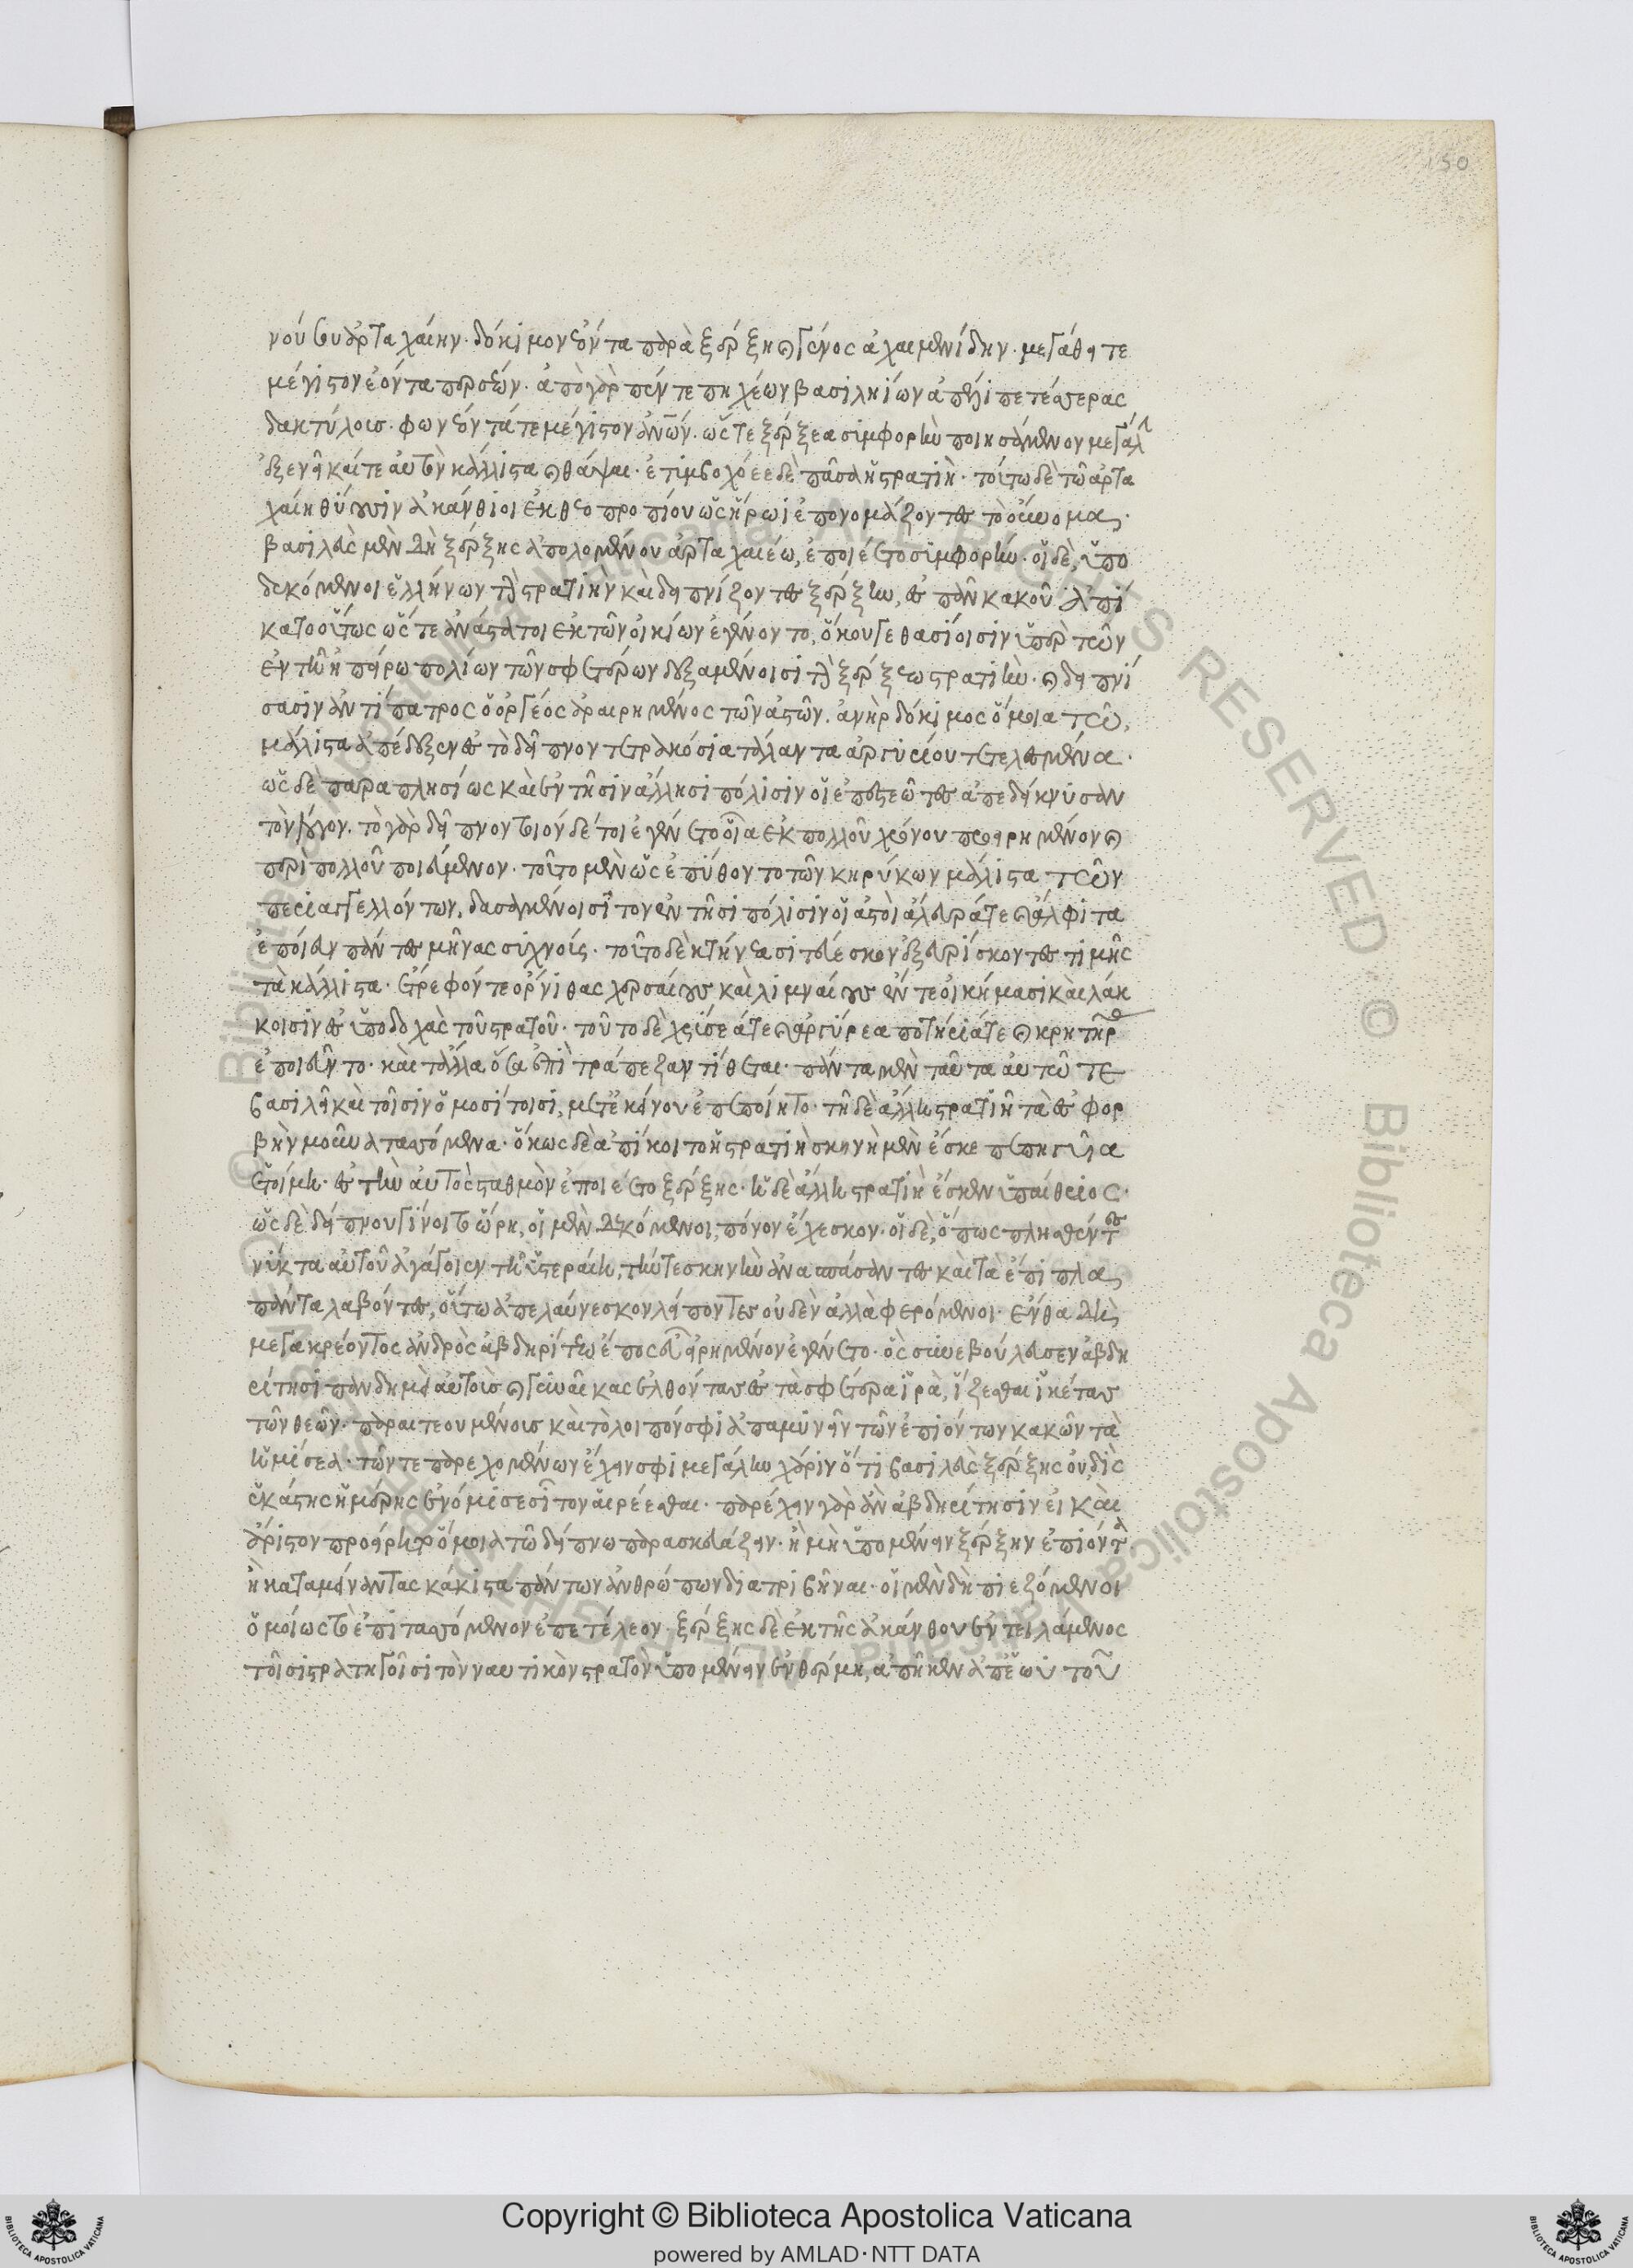 νου τὸν ἀρταχαίην· δόκιμον ἐόντα παρὰ ξέρξη καὶ γένος ἀχαιμενίδην· μεγάθει τε
μέγιστον ἐόντα περσέων· ἀπὸ γὰρ πέντε πηχέων βασιληίων ἀπέλιπε τέσσερας
δακτύλους· φωνέοντά τε μέγιστον ἀνῶν· ὥστε ξέρξεα συμφορὴν ποιησάμενον μεγάλ
ἐξενεῖκαί τε αὐτὸν κάλλιστα καὶ θάψαι· ἐτυμβοχόεε δὲ πᾶσα ἡ στρατιὴ· τούτω δὲ τῶ ἀρτα
χαίη θύουσιν ἀκάνθιοι ἐκ θεοπροπίου ὡς ἥρωι ἐπονομάζοντες τὸ οὔνομα·
βασιλεὺς μὲν δὴ ξέρξης ἀπολομένου ἀρταχαιέω, ἐποιέετο συμφορήν· οἱ δὲ, ὑπο
δεκόμενοι ἑλλήνων τὴν στρατιὴν καὶ δειπνίζοντες ξέρξην, ἐς πᾶν κακοῦ ἀπί
κατο οὕτως ὥστε ἀνάστατοι ἐκ τῶν οἰκίων ἐγένοντο, ὅκου γε θασίοισιν ὑπὲρ τῶν
ἐν τῆ ἠπείρω πολίων τῶν σφετέρων δεξαμένοισι τὴν ξέρξεω στρατιὴν· καὶ δειπνί
σασιν ἀντίπατρος ὁ ὀργέος ἀραιρημένος τῶν ἀστῶν. ἀνὴρ δόκιμος ὅμοια τῶ,
μάλιστα ἀπέδεξεν ἐς τὸ δεῖπνον τετρακόσια τάλαντα ἀργυρίου τετελεσμένα·
ὣς δὲ παραπλησίως καὶ ἐν τῆσιν ἄλλησι πόλισιν οἱ ἐπεστεῶτες ἀπεδείκνυσαν
τὸν λόγον. τὸ γὰρ δεῖπνον τοιόνδέ τοι ἐγένετο οἷα ἐκ πολλοῦ χρόνου προειρημένον καὶ
περὶ πολλοῦ ποιεύμενον· τοῦτο μὲν ὡς ἐπύθοντο τῶν κηρύκων μάλιστα τῶν
περιαγγελλόντων, δασάμενοι σῖτον ἐν τῆσι πόλισιν οἱ ἀστοὶ ἄλευρά τε καὶ ἄλφιτα
ἐποίευν πάντες μῆνας συχνούς· τοῦτο δὲ κτήνεα σιτεύεσκον ἐξευρίσκοντες τιμῆς
τὰ κάλλιστα· ἔτρεφόν τε ὄρνιθας χερσαίους καὶ λιμναίους ἔν τε οἰκήμασι καὶ λάκ
κοισιν ἐς ὑποδοχὰς τοῦ στρατοῦ· τοῦτο δὲ χρύσεά τε καὶ ἀργύρεα ποτήριά τε καὶ κρητῆρας
ἐποιεῦντο· καὶ τἄλλα ὅσα ἐπὶ τράπεζαν τίθεται· πάντα μὲν ταῦτα αὐτῶ τε
βασιλεῖ καὶ τοῖσιν ὁμοσίτοισι, μετ' ἐκείνου ἐπεποίητο· τῆ δὲ ἄλλη στρατιῆ τὰ ἐς φορ
βὴν μοῦνα τασσόμενα· ὅκως δὲ ἀπίκοιτο ἡ στρατιὴ σκηνὴ μὲν ἔσκε πεπηγυῖα
ἑτοίμη· ἐς τὴν αὐτὸς σταθμὸν ἐποιέετο ξέρξης· ἡ δὲ ἄλλη στρατιὴ ἔσκεν ὑπαίθριος·
ὡς δὲ δείπνου γίνοιτο ὥρη, οἱ μὲν δεκόμενοι, πόνον ἔχεσκον· οἱ δὲ, ὅπως πλησθέντες
νύκτα αὐτοῦ ἀγάγοιεν τῆ ὑστεραίη, τήν τε σκηνὴν ἀνασπάσαντες καὶ τὰ ἔπιπλα
πάντα λαβόντες, οὕτω ἀπελαύνεσκον λείποντες οὐδὲν ἀλλὰ φερόμενοι· ἔνθα δὴ
μεγακρέοντος ἀνδρὸς ἀβδηρίτεω ἔπος εὖ εἰρημένον ἐγένετο· ὃς συνεβούλευσεν ἀβδη
ρίτησι πανδημεὶ αὐτοὺς καὶ γυναῖκας ἐλθόντας ἐς τὰ σφέτερα ἱρὰ, ἵζεσθαι ἱκέτας
τῶν θεῶν· παραιτεουμένους καὶ τὸ λοιπόν σφι ἀπαμύνειν τῶν ἐπιόντων κακῶν τὰ
ἡμίσεα· τῶν τε παρελχομένων ἔχειν σφι μεγάλην χάριν ὅτι βασιλεὺς ξέρξης οὐ δὶς
ἑκάστης ἡμέρης ἐνόμισε σῖτον αἱρέεσθαι· παρέχειν γὰρ ἂν ἀβδηρίτησιν εἰ καὶ
ἄριστον προείρητο ὅμοια τῶ δείπνω παρασκευάζειν· ἢ μὴ ὑπομένειν ξέρξην ἐπιόντα
ἢ καταμείναντας κάκιστα πάντων ἀνθρώπων διατριβῆναι· οἱ μὲν δὴ πιεζόμενοι
ὁμοίως τὸ ἐπιτασσόμενον ἐπετέλεον· ξέρξης δὲ ἐκ τῆς ἀκάνθου ἐντειλάμενος
τοῖσι στρατηγοῖσι τὸν ναυτικὸν στρατὸν ὑπομένειν ἐν θέρμη, ἀπῆκεν ἀπ' ἑωυτοῦ
Copyright © Biblioteca Apostolica Vaticana
powered by AMLAD·NTT DATA